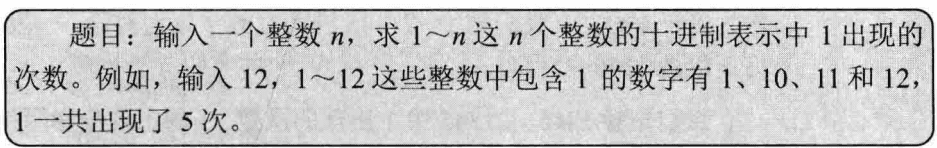 题目：输入一个整数 n，求 1～n 这 n 个整数的十进制表示中 1 出现的
次数。例如，输入 12，1～12 这些整数中包含 1 的数字有 1、10、11 和 12，
1 一共出现了 5 次。